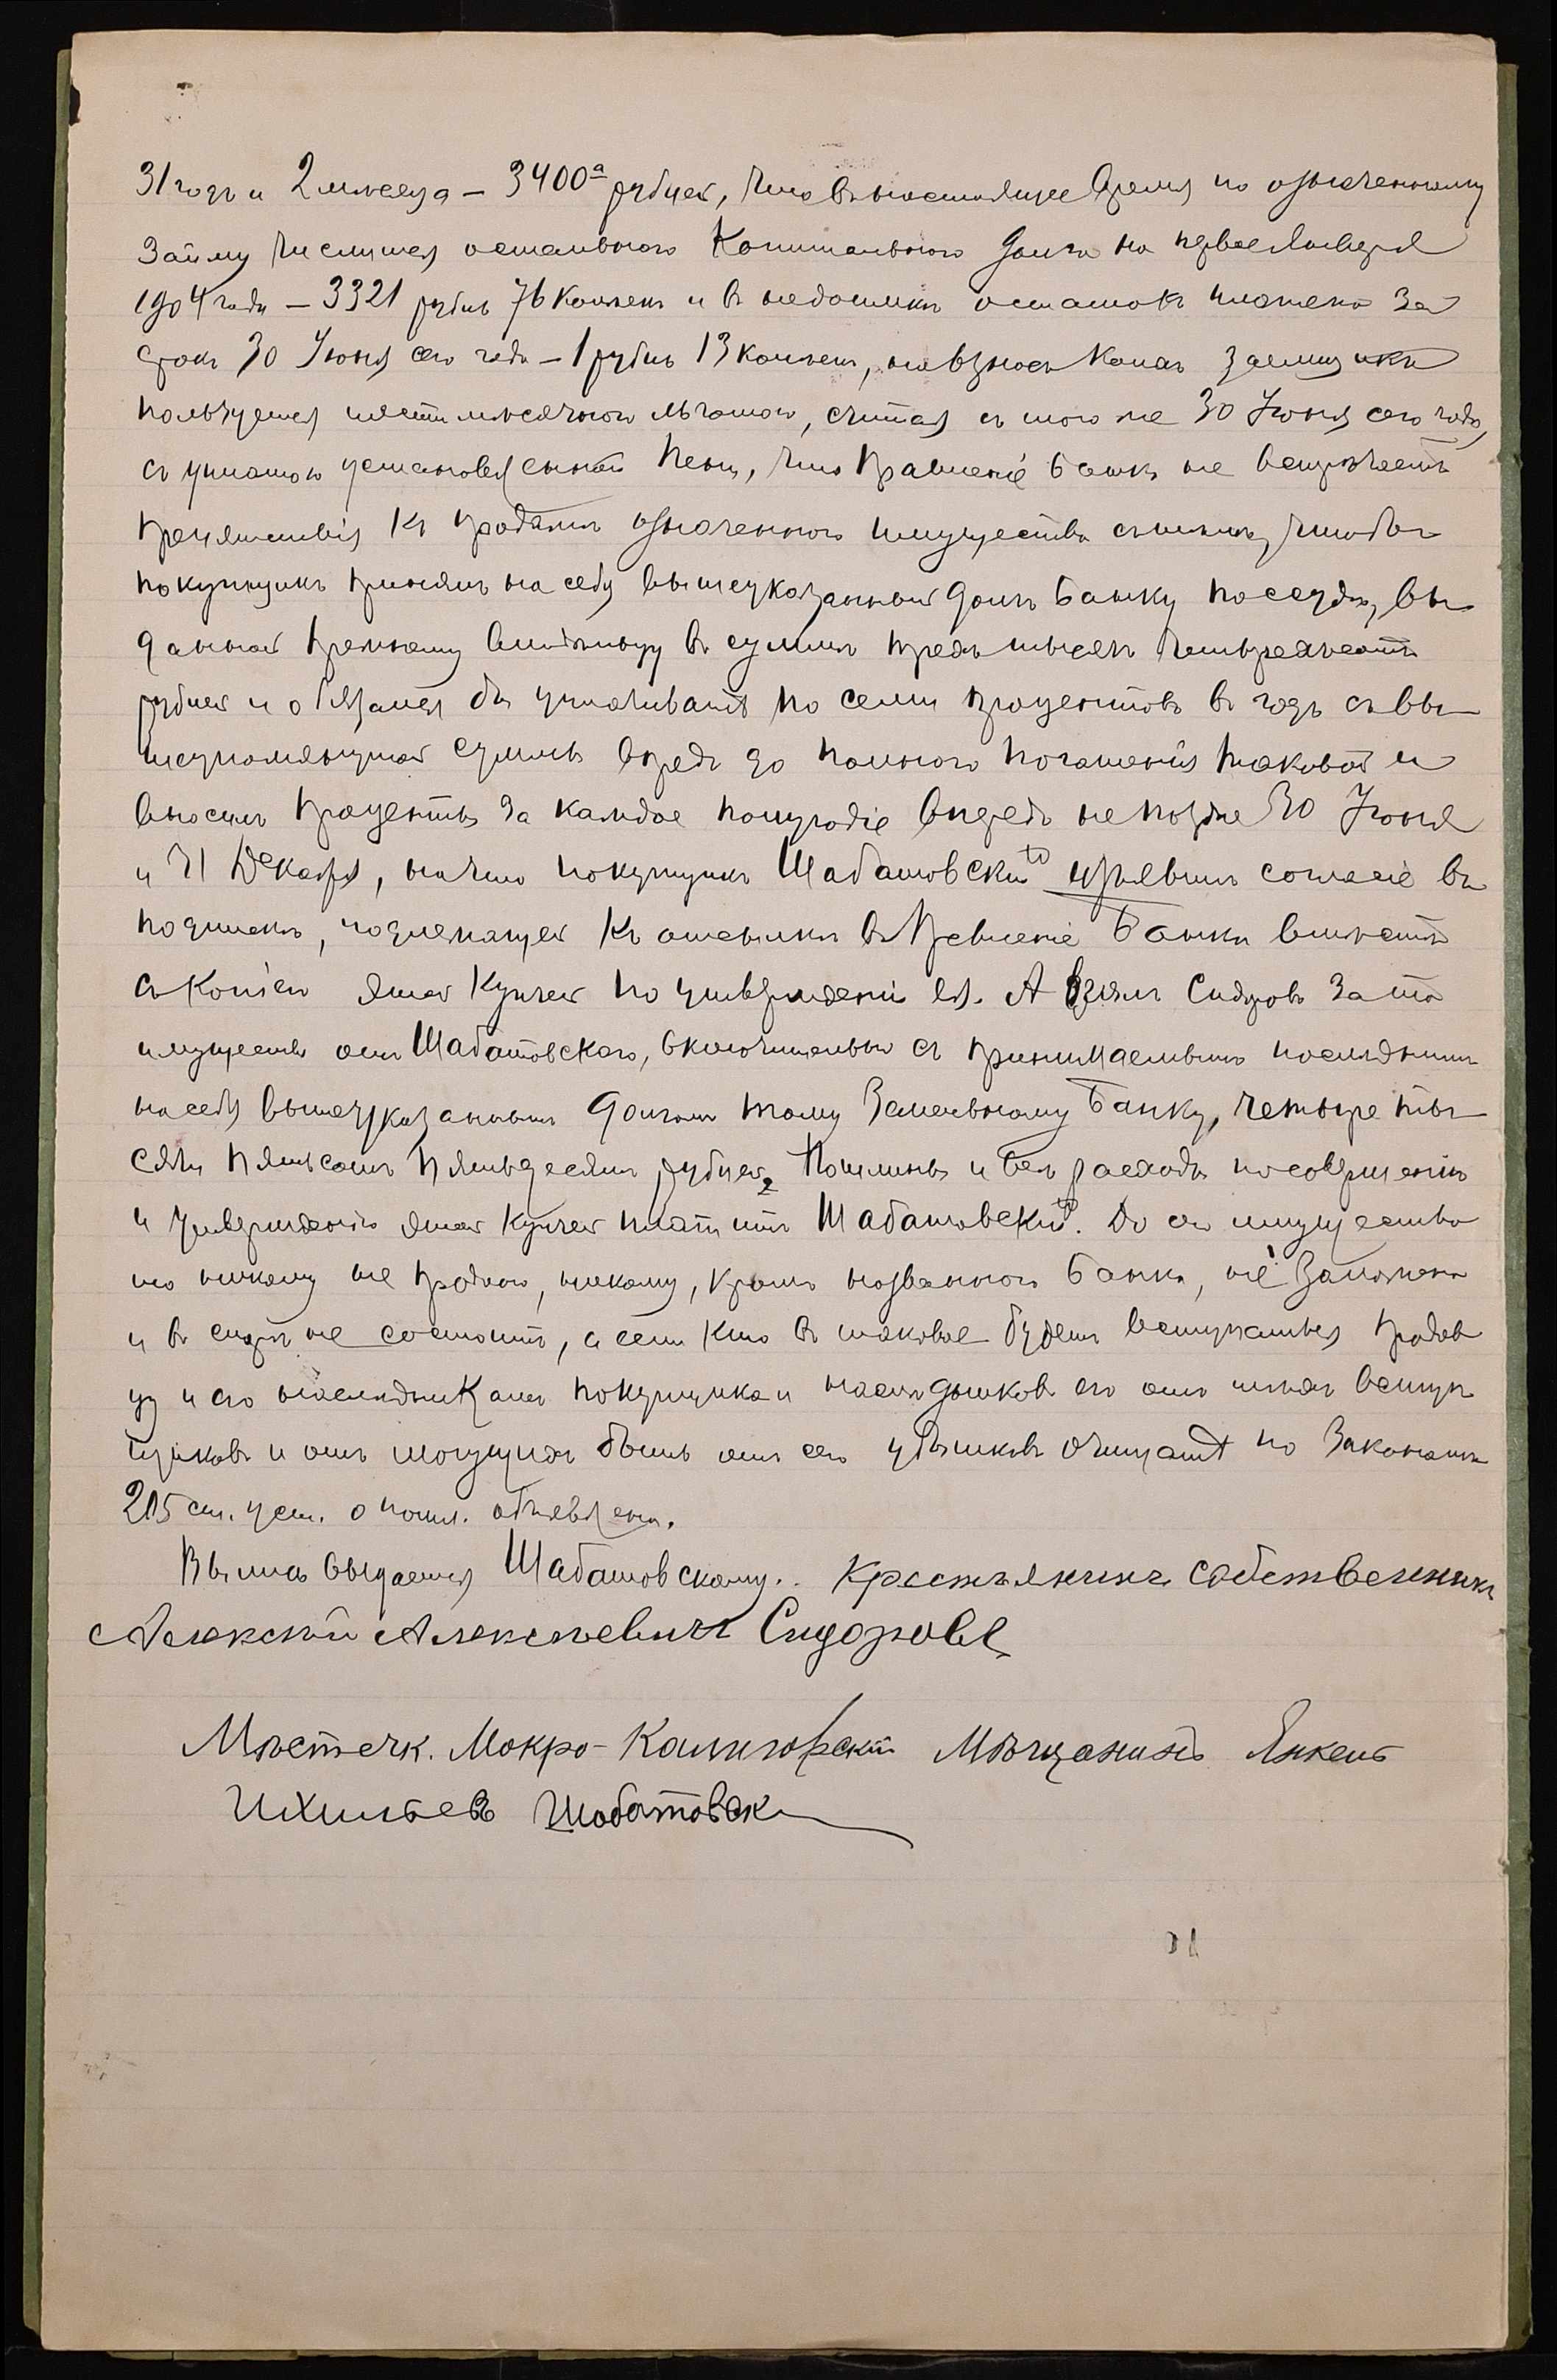 31 годъ и 2 мѣсяца – 3400а рублей, что въ настоящее время по означенному
займу числится остального капитального долга на первое Января
1904 года – 3321 рубль 76 копѣекъ и въ недоимкѣ остатокъ платежа за
срокъ 30 Июня сего года – 1 рубль 13 копѣекъ, на взносъ коихъ заемщикъ
пользуется шестимѣсячною льготою, считая съ того же 30 Июня сего года,
съ уплатою установленной пени, что Правленіе Банка не встрѣчаетъ
препятствія къ продажѣ означеннаго имущества съ тѣмъ, чтобы
покупщикъ принялъ на себя вышеуказанный долгъ Банку по ссудѣ, вы-
данной прежнему владѣльцу въ суммѣ трехъ тысячъ четырехсотъ
рублей и обязался бы уплачивать по семи процентовъ въ годъ съ вы-
шеупомянутой суммы впредь до полнаго погашенія таковой и
вносить проценты за каждое полугодіе впередъ не позже 30 Июня
и 31 Декабря, на что покупщикъ Шабатовскій изъявилъ согласіе въ
подпискѣ, подлежащей къ отсылкѣ въ Правленіе Банка вмѣстѣ
съ копіею этой купчей по утвержденіи ея. А взялъ Сидоровъ за то
имущество отъ Шабатовскаго, включительно съ принимаемымъ послѣднимъ
на себя вышеуказаннымъ долгомъ тому Земельному Банку, четыре ты-
сячи пятьсотъ пятьдесятъ рублей. Пошлины и всѣ расходы по совершенію
и утвержденію этой купчей платитъ Шабатовскій. До сего имущество
то никому не продано, никому, кромѣ названнаго Банка, не заложено
и въ спорѣ не состоитъ, а если кто въ таковое будетъ вступаться продав-
цу и его наслѣдникамъ покупщика и наслѣдниковъ его отъ тѣхъ вступ-
щиковъ и отъ могущихъ быть отъ сего убытковъ очищать по законамъ
215 ст. уст. о пошл. объявлена.
Выпись выдается Шабатовскому. Крестьянинъ собственникъ
Алексѣй Алексѣевичъ Сидоровъ
Мѣстечк. Мокро-Калигорскій Мѣщанинъ Янкель
Ихильевъ Шабатовскій